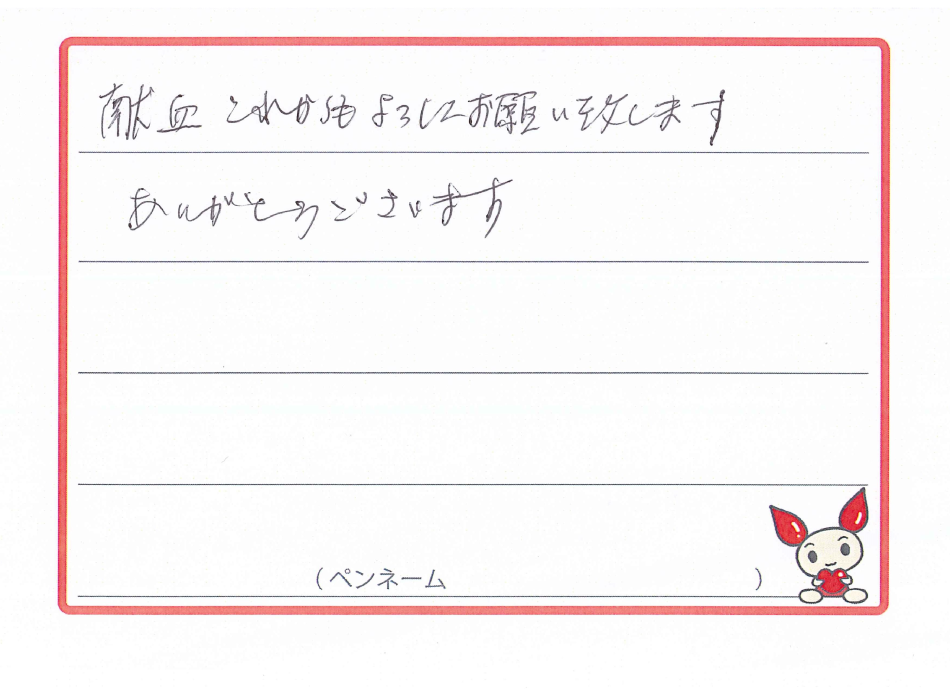 献血 これからも よろしくお願い致します
ありがとうございます
(ペンネーム )